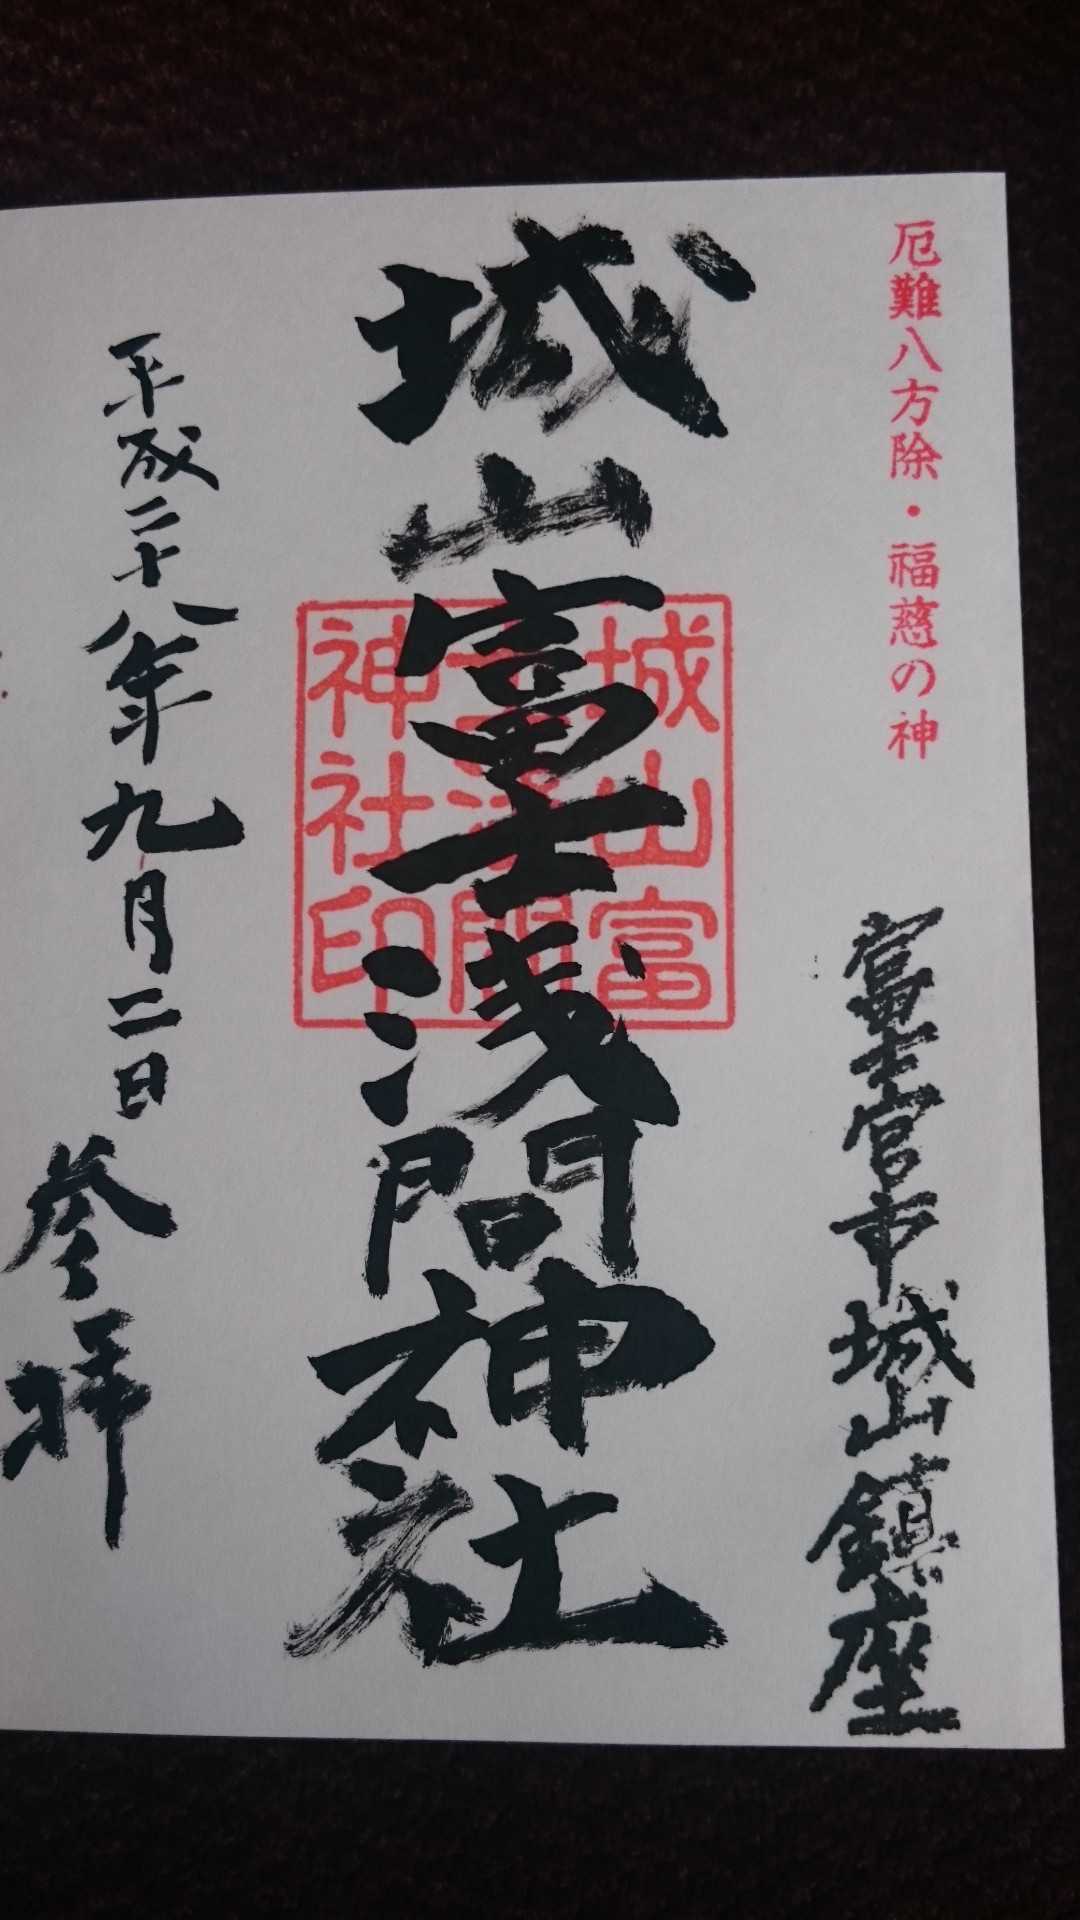 厄難八方除・福慈の神
富士宮市城山鎮座
城山富士浅間神社
城山富
士浅間
神社印
平成二十八年九月二日
参拝